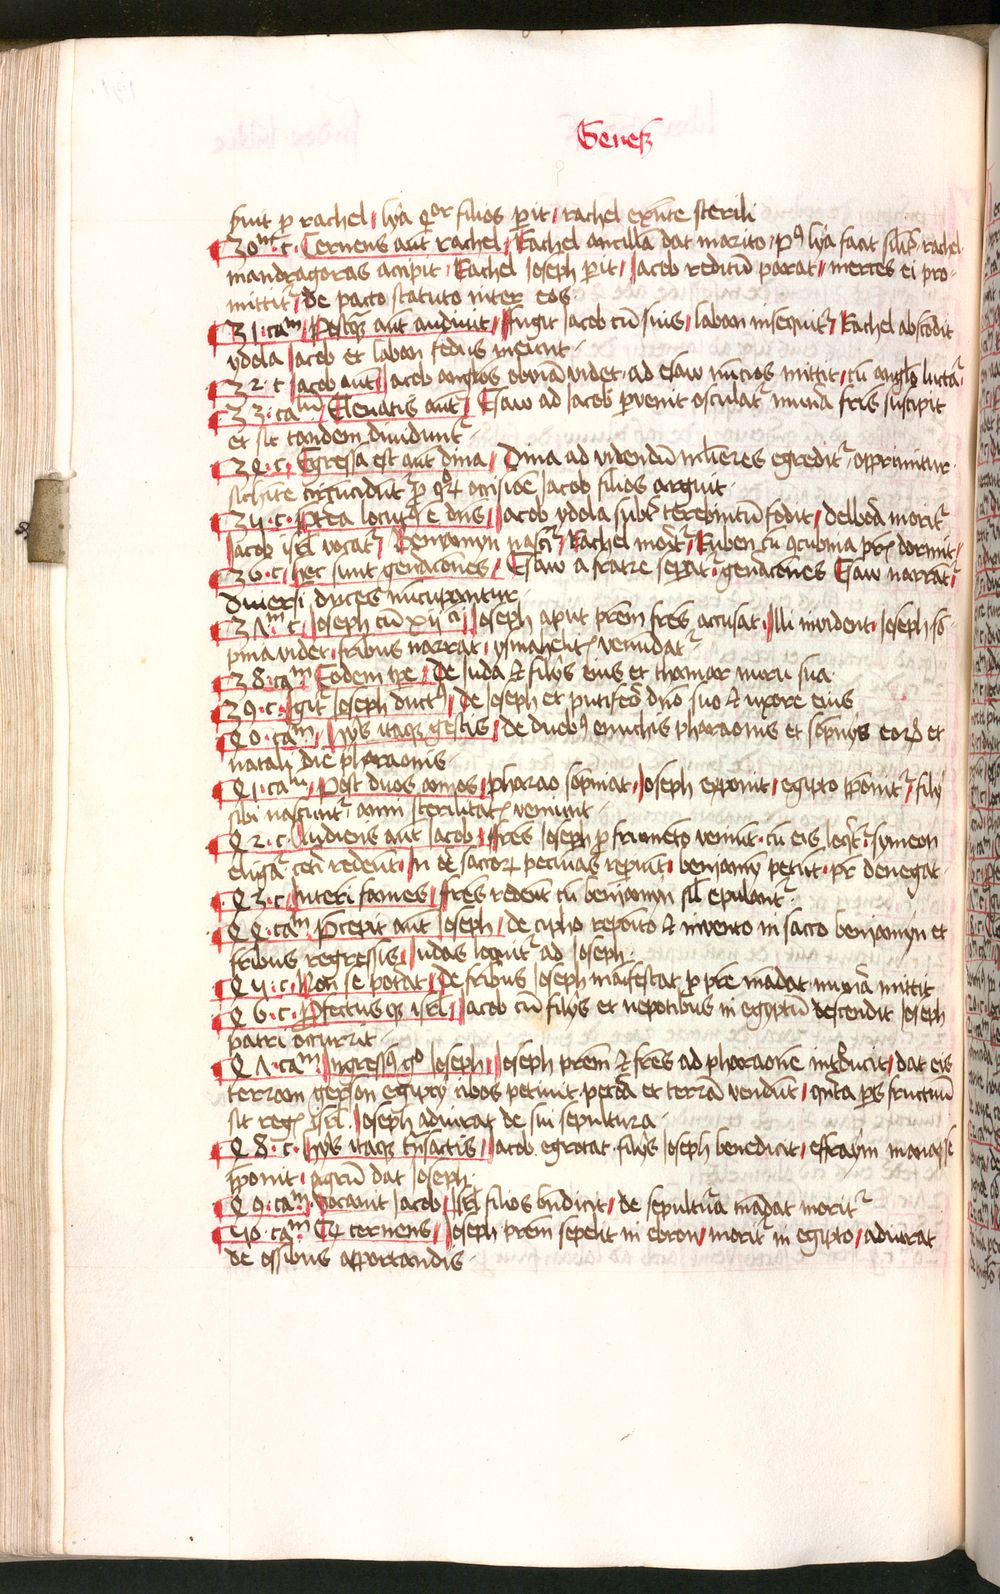 Genes
fiunt p rachel / lya 4or filios pit / rachel exnte sterili
30m c. Cernens aut rachel / Rachel ancillā dat marito / p9 lya facit silr / rachel
mandragoras accipit / Rachel Joseph pit / Jacob reditū parat / merces ei pro-
mittit / de pacto statuto inter eos
31. cam / Postq aut audivit / ffugit Jacob cū suis / laban insequit / Rachel abscōdit
ydola Jacob et laban fedus ineunt
32. c Jacob aut / Jacob anglos obviā videt. ad esaw nūcios mittit / cū anglo luctat
33. cam / Elevatis aut / Esaw ad Jacob pvenit osculat munā fris suscipit
et sic tandem dividunt
34. c. Egressa est aut dina / Dina ad videndū mlieres egredit / opprimitur
sichite circūcidūt p qr occisiōe Jacob filios arguit
35. c. Prea locut9 e dns / Jacob ydola subt terebintū fodit / delborā morit
Jacob isrl vocat / Benjamyn nascit / Rachel morit / Ruben cū ꝯcubina pris dormit
36. c / hec sunt genacōnes / Esaw a fratre sepat. genacōnes Esaw narrat
Diversi duces nūcupantur
37m c / Joseph cū xvi / Joseph aput prem fres accusat. Illi invident. Joseph sō-
pnia videt. fribus narrat / ysmahelit venūdat
38. cam Eodem tpe / De Juda & filiis eius et thamar nuru sua
39. c. Igit Joseph duct9 / de Joseph et putifero dno suo & uxore eius
40. cam / hys itaq gestis / de duob9 eunuchis pharaonis et sōpnys eor et
natali die pharaonis
41. cam / Post duos annos / pharao sōpniat. Joseph exponit / egipto pponit / filij
sibi nascunt / anni sterilitat veniunt
42. c. Audiens aut Jacob / ffres Joseph p frumēto veniūt. cū eis loqt / symeon
ligat ceti redeūt. In de saccor pecunias repiūt. benjamy petūt. pr denegat
43. c. Interi fames / fres redeūt cū benjamyn sil epulant
44. cam Pcepit aut Joseph / de cipho reposito & invento in sacco benjamyn et
fribus regressis / Judas loquit ad Joseph
45. c. Non se poterat / De fribus Joseph maifestat p pre mādat munā mittit
46. c. Pfectusq isrl / Jacob cū filiis et nepotibus in egyptū descendit Joseph
patri occurrit
47. cam Ingress9 go Joseph / Joseph prem & fres ad pharaone intrducit / dat eis
terram gessen egipty cibos petiunt pecora et terrā vendūt / qnta ps fructuū
fit regi isrl. Joseph adiurat de sui sepultura
48. c. hys itaq tnsactis / Jacob egrotat filijs Joseph benedicit / effraym manasse
pponit. agrū dat Joseph
49. cam. Vocavit Jacob / Isrl filios bndicit / de sepultura mādat morit
50. cam Qd cernens / Joseph prem sepelit in ebron / morit in egipto / adiurat
de ossibus apportandis